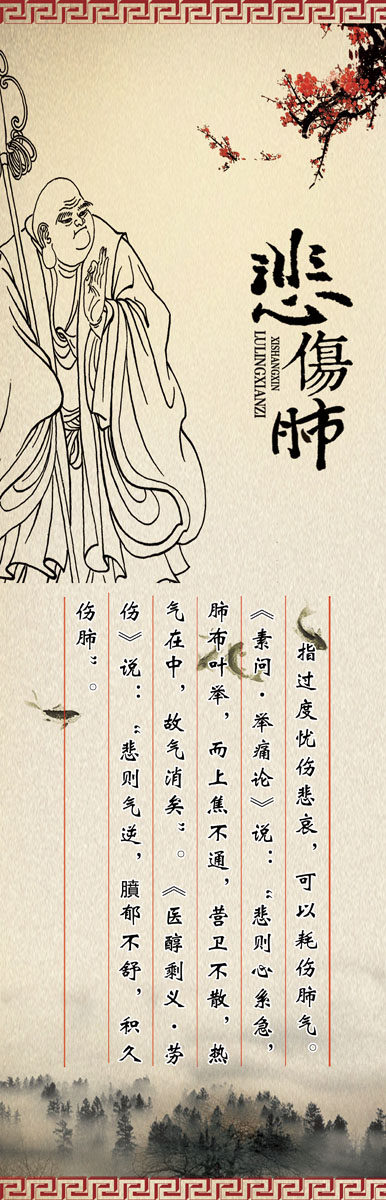 悲傷肺
XISHANGXIN
LULINGXIANZI
指过度忧伤悲哀，可以耗伤肺气。
《素问·举痛论》说：“悲则心系急，
肺布叶举，而上焦不通，营卫不散，热
气在中，故气消矣”。《医醇剩义·劳
伤》说：“悲则气逆，膹郁不舒，积久
伤肺”。